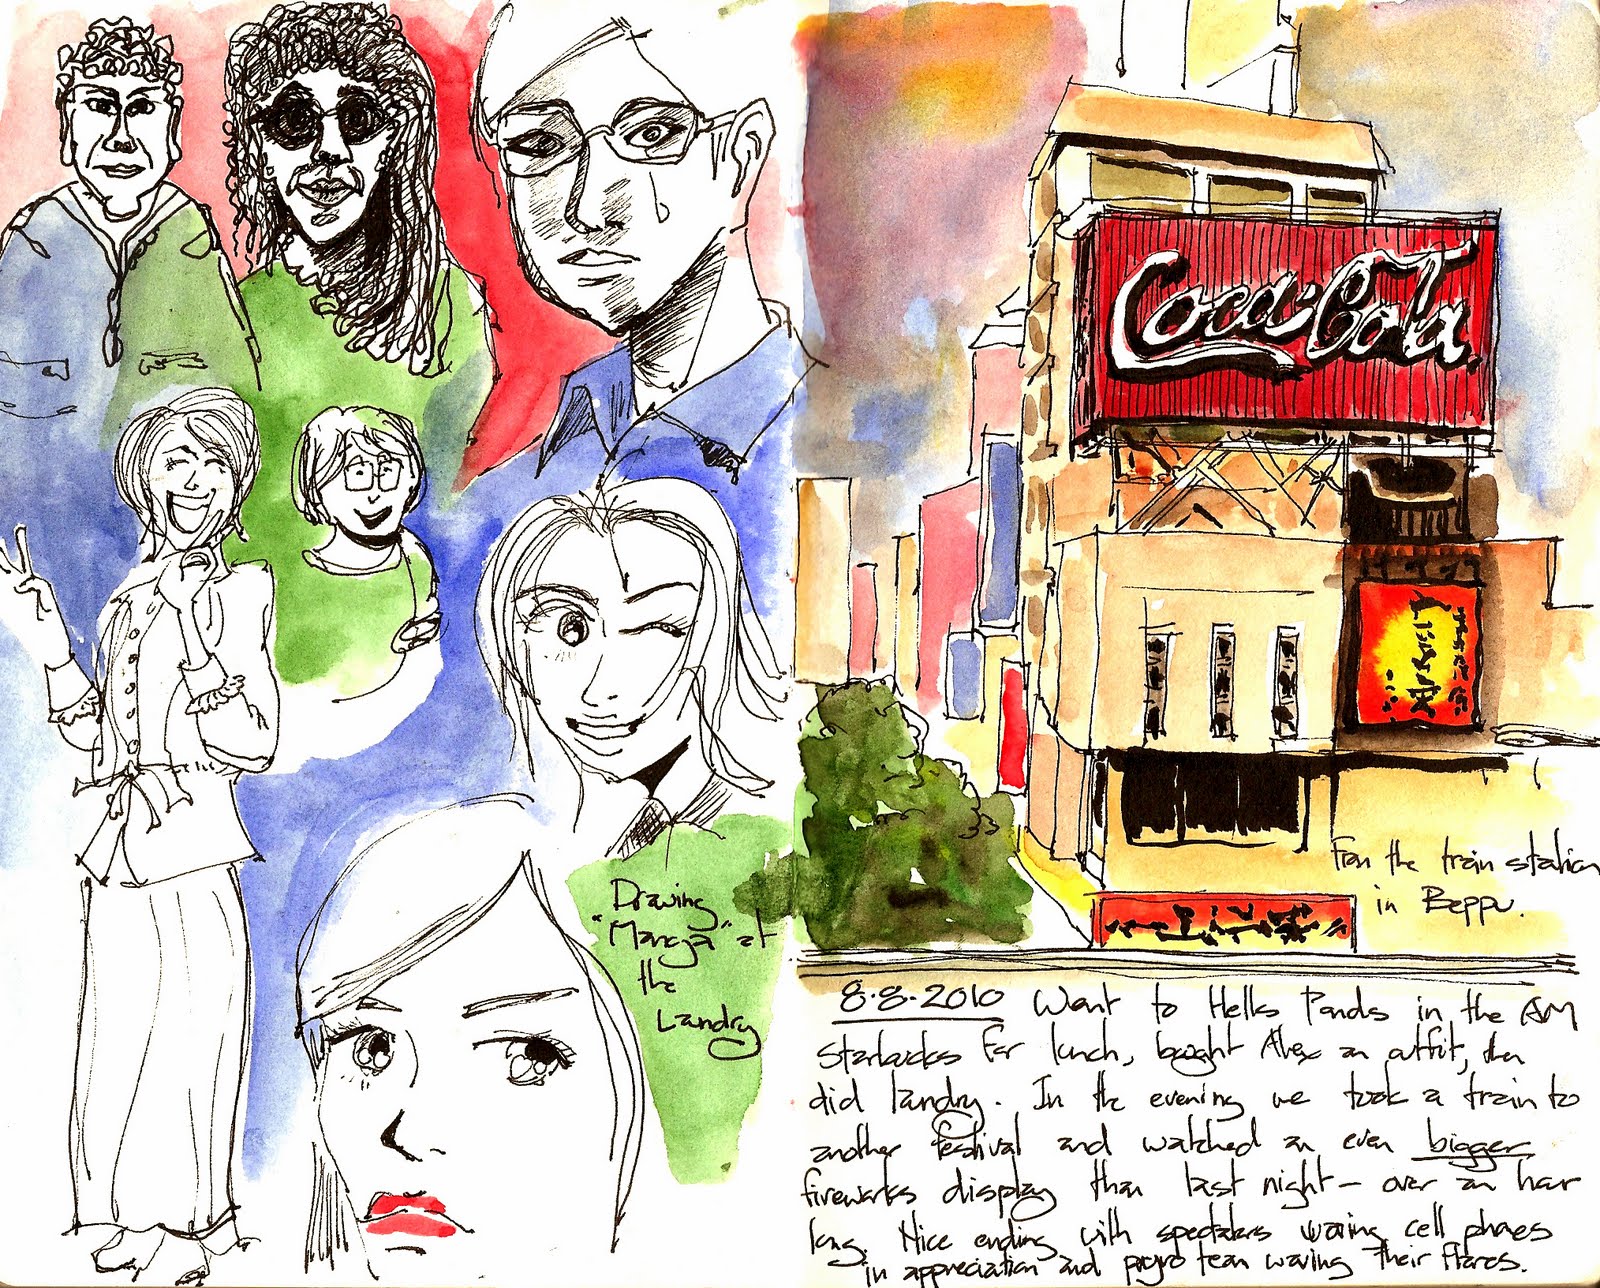 Drawing
"Manga" at
the
Landry
Coca-Cola
From the train station
in Beppu.
8.8.2010 Went to Hello Panda in the AM
Starbucks for lunch, bought Alex an outfit, then
did landry. In the evening we took a train to
another festival and watched an even bigger
fireworks display than last night - over an hour
long. Nice ending with spectators waving cell phones
in appreciation and pyro team waving their flares.